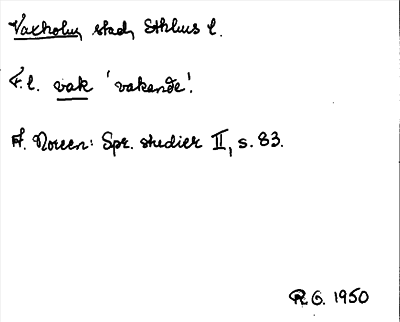 Vaxholm, stad, Sthlms l.
F.l. vak 'vakande'.
A. Noreen: Spr. studier II, s. 83.
R G. 1950